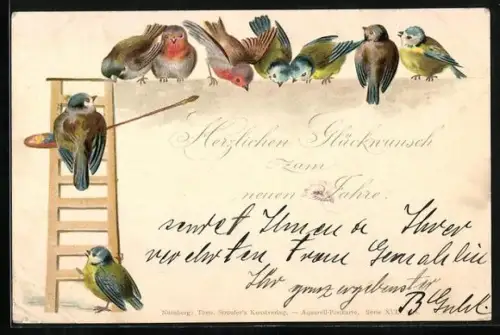 Herzlichen Glückwunsch
zum
neuen Jahre.
sendet Ihnen u Ihrer
verehrten Frau Gemahlin
Ihr ganz ergebenster
Nürnberg: Theo. Stroefer's Kunstverlag. — Aquarell-Postkarte, Serie